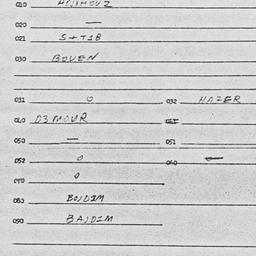 010
020 —
021 S+T18
030 BOVEN
031 0 032 HAZER
040 D3 MOUR
050 — 051
052 0 060 —
070 0
080 BOJDIM
090 BAJDIM